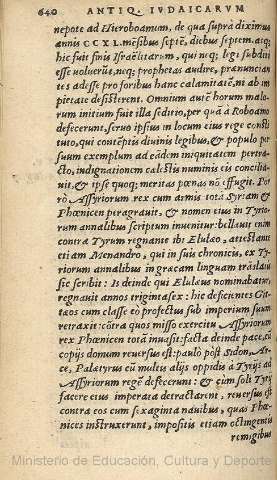 640 ANTIQ. IVDAICARVM
nepote ad Hieroboamum, de qua supra diximus
annis CCXL. mēsibus septē, diebus septem. atq;
hic fuit finis Israëlitarum, qui neq; legi subditi
esse voluerūt, neq; prophetas audire, prænuncian
tes adesse pro foribus hanc calamitatē, ni ab im
pietate desisterent. Omnium autē horum malo-
rum initium fuit illa seditio, per quā a Roboamo
defecerunt, seruo ipsius in locum eius rege consti
tuto, qui contēptis diuinis legibus, & populo per
suum exemplum ad eādem iniquitatem pertra-
cto, indignationem cælestis numinis eis concilia-
uit, & ipse quoq; meritas pœnas nō effugit. Por
rò Assyriorum rex cum armis tota Syram &
Phœnicen peragrauit, & nomen eius in Tyrio-
rum annalibus scriptum inuenitur: bellauit enim
contra Tyrum regnante ibi Elulæo, attestante
etiam Menandro, qui in suis chronicis, ex Ty
riorum annalibus in græcam linguam trāslatis
sic scribit: Is deinde qui Elulæus nominabatur,
regnauit annos triginta sex: hic deficientes Cit
tæos cum classe eò profectus sub imperium suum
retraxit: cōtra quos misso exercitu Assyriorum
rex Phœnicen totā inuasit: facta deinde pace, cū
copijs domum reuersus est: paulò pòst Sidon, Ar-
ce, Palætyrus cū multis alijs oppidis à Tyrijs ad
Assyriorum regē defecerunt: & cùm soli Tyrij
facere eius imperata detractarent, reuersus est
contra eos cum sexaginta nauibus, quas Phœ-
nices instruxerunt, impositis etiam octingentis
remigibus
Ministerio de Educación, Cultura y Deporte